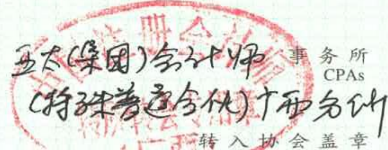 亚太(集团)会计师 事务所
CPAs
(特殊普通合伙)广西分所
转入协会盖章